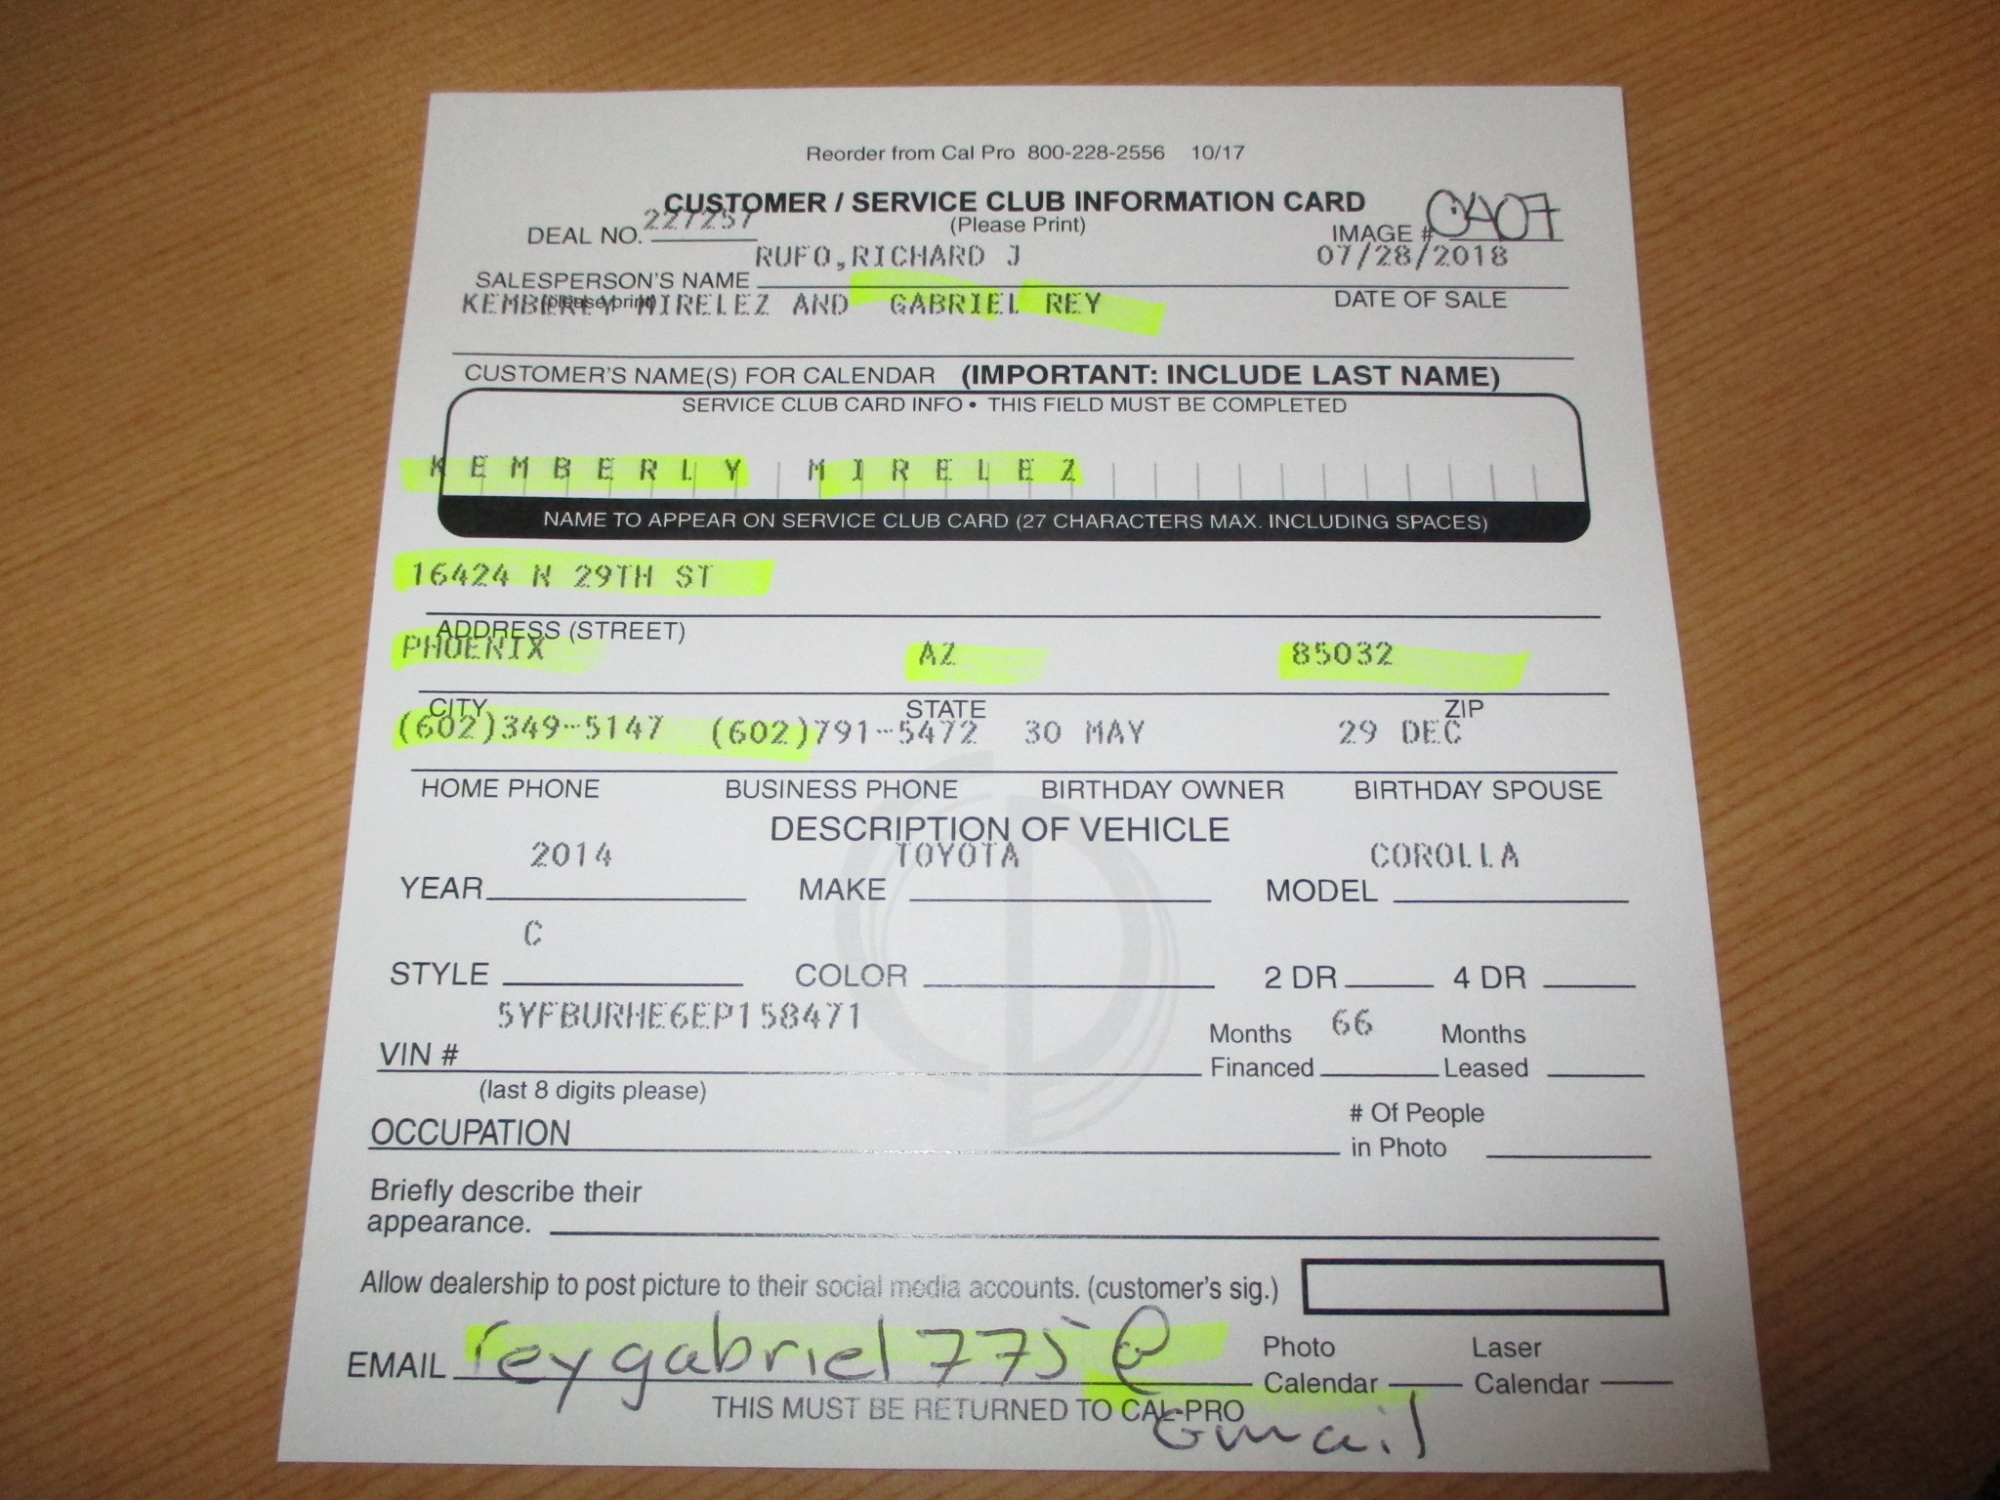 Reorder from Cal Pro 800-228-2556 10/17
CUSTOMER / SERVICE CLUB INFORMATION CARD
(Please Print)
DEAL NO. 227257
IMAGE # 0407
RUFO,RICHARD J
07/28/2018
SALESPERSON'S NAME
(please print)
DATE OF SALE
KEMBERLY MIRELEZ AND GABRIEL REY
CUSTOMER'S NAME(S) FOR CALENDAR (IMPORTANT: INCLUDE LAST NAME)
SERVICE CLUB CARD INFO • THIS FIELD MUST BE COMPLETED
KEMBERLY MIRELEZ
NAME TO APPEAR ON SERVICE CLUB CARD (27 CHARACTERS MAX. INCLUDING SPACES)
16424 N 29TH ST
ADDRESS (STREET)
PHOENIX AZ 85032
CITY STATE ZIP
(602)349-5147 (602)791-5472 30 MAY 29 DEC
HOME PHONE BUSINESS PHONE BIRTHDAY OWNER BIRTHDAY SPOUSE
DESCRIPTION OF VEHICLE
2014 TOYOTA COROLLA
YEAR MAKE MODEL
C
STYLE COLOR 2 DR 4 DR
5YFBURHE6EP158471
VIN #
(last 8 digits please)
Months Financed 66
Months Leased
OCCUPATION
# Of People
in Photo
Briefly describe their
appearance.
Allow dealership to post picture to their social media accounts. (customer's sig.)
EMAIL reygabriel775@
Gmail
Photo
Calendar
Laser
Calendar
THIS MUST BE RETURNED TO CAL-PRO